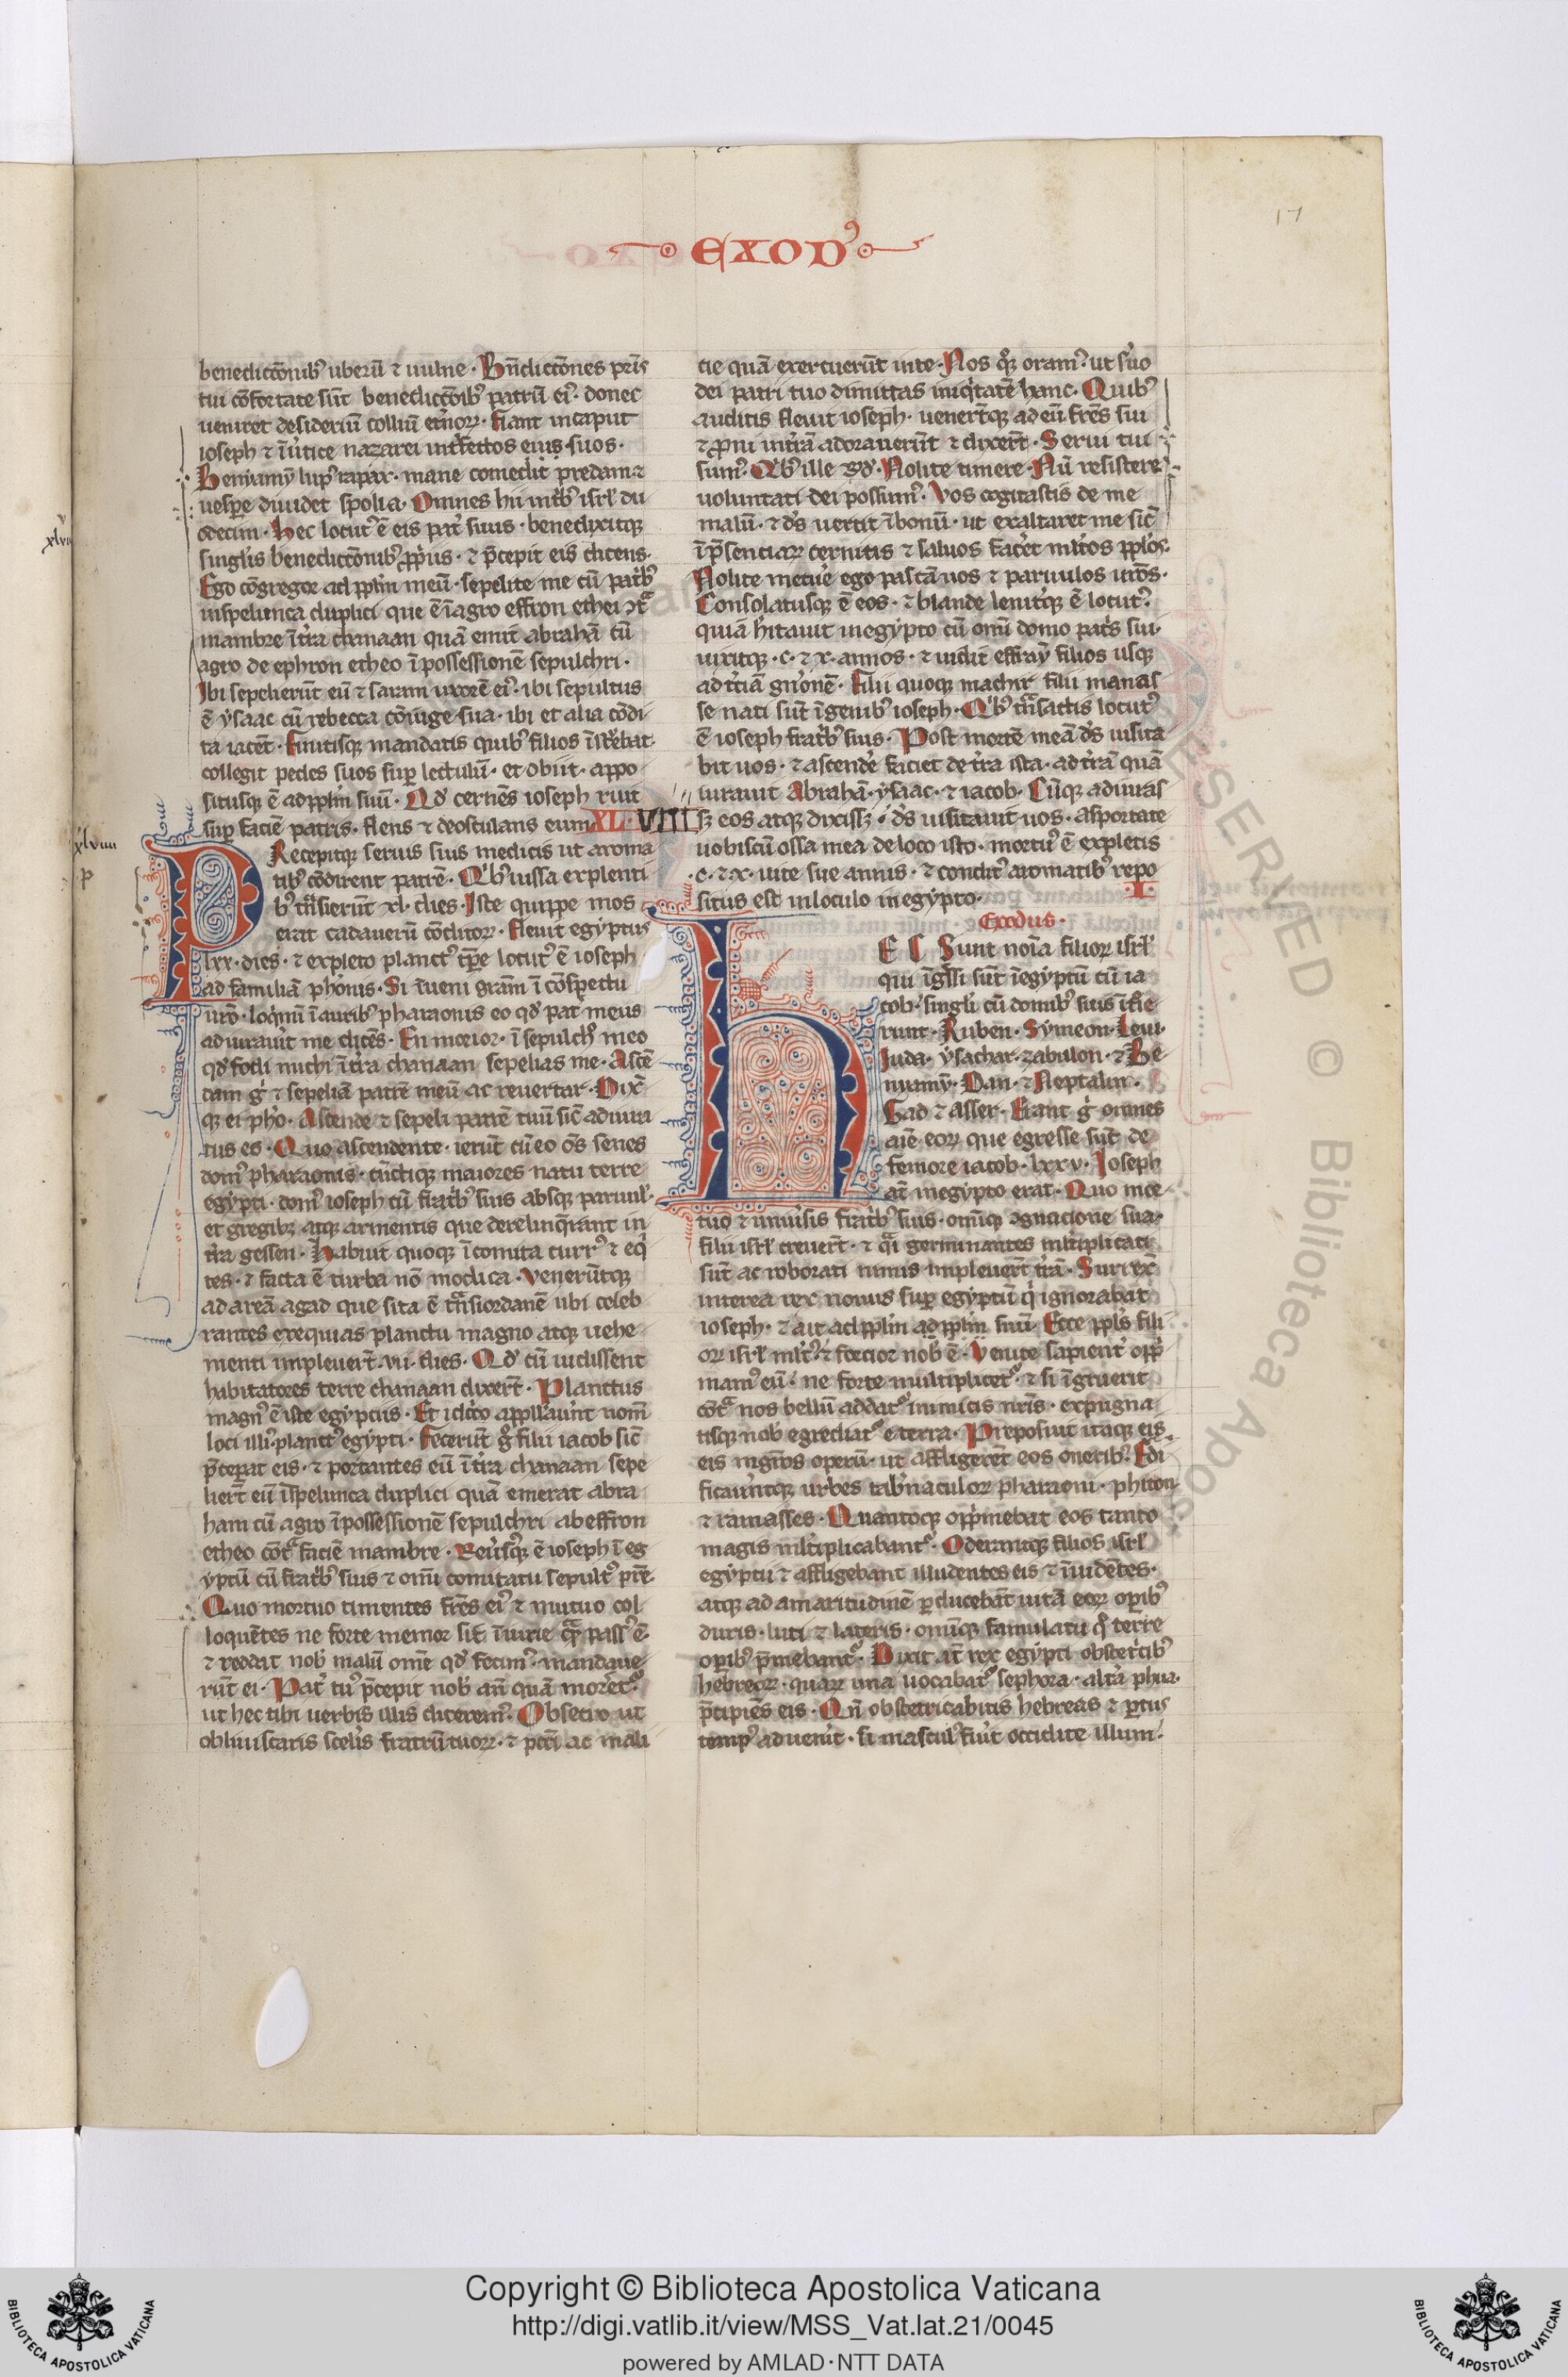 17
EXOD᾽
benedictōnibꝰ uberū ⁊ uulue · Bn̄dictōnes pr̄is
tui cōfortate sūt benedictōibꝰ patrū eiꝰ · donec
ueniret desideriū colliū et̄noꝝ · fiant in caput
ioseph ⁊ ī ūtice nazarei int̄ fr̄es eius suos ·
Beniamȳ lupꝰ rapax · mane comedit predam ⁊
uesꝑe diuidet spolia · Omnes hii in tbꝰ isrł du
odecim · hec locutꝰ ē eis pat̄ suus · benedixitqꝫ
singłis benedictōnibꝰ ꝓpriis · ⁊ p̄cepit eis dicens ·
Ego cōgregor ad ppłm meū · sepelite me cū pat̄bꝰ
in spelunca duplici que ē ī agro effron ethei ↄt̄ᵃ
mambre ī t̄ra chanaan quā emit abrahā cū
agro de ephron etheo ī possessionē sepulchri ·
Ibi sepelierūt eū ⁊ saram uxorē eiꝰ · ibi sepultus
ē ysaac cū rebecca cōiuge sua · ibi et alia cōdi
ta iacēt · finitisqꝫ mandatis quibꝰ filios īst̄ebat ·
collegit pedes suos suꝑ lectulū · et obiit · appo
situsqꝫ ē ad ppłm suū · Qđ cernēs ioseph ruit
suꝑ faciē patris · flens ⁊ deosculans eum XL·VIIII
xlvii
xlviii
p
PRecepitqꝫ seruis suis medicis ut aroma
tibꝰ cōdirent patrē · Qͥbꝰ iussa explenti
bꝰ t̄nsierūt xl · dies · Iste quippe mos
erat cadauerū cōditoꝝ · fleuit egyptus
lxx · dies · ⁊ expleto planctꝰ tꝑe locutꝰ ē ioseph
ad familiā phōnis · Si īueni grām ī cōspectu
ur̄o · loqm̄i ī auribꝰ pharaonis eo qđ pat̄ meus
adiurau̇it me dicēs · En morior · ī sepulchͦ meo
qđ fodi michi ī t̄ra chanaan sepelias me · Ascē
dam gͥ ⁊ sepeliā patrē meū ac reuertar · Dixͭ
qꝫ ei pho · Ascende ⁊ sepeli patrē tuū sic̄ adiura
tus es · Quo ascendente · ierūt cū eo ōs senes
domꝰ pharaonis · cūctiqꝫ maiores natu terre
egypti · domꝰ ioseph cū frat̄bꝰ suis absqꝫ paruuł ·
et gregibꝫ atqꝫ armentis que derelinq̄rant in
t̄ra gessen · habuit quoqꝫ ī comitatu currꝰ ⁊ eqͥ
tes · ⁊ facta ē turba nō modica · Venerūtqꝫ
ad areā agad que sita ē t̄ns iordanē ubi celeb
rantes exequias planctu magno atqꝫ uehe
menti impleuer̄t · vii · dies · Qđ cū uidissent
habitatores terre chanaan dixer̄t · Planctus
magnꝰ ē iste egyptiis · Et idc̄co appłłau̇nt nom̄
loci illiꝰ planctꝰ egypti · fecerūt gͦ filii iacob sic̄
p̄ceꝑat eis · ⁊ portantes eū ī t̄ra chanaan sepe
lier̄t eū ī spelunca duplici quā emerat abra
ham cū agro ī possessionē sepulchri ab effron
etheo cōtᵃ faciē mambre · Reu̇susqꝫ ē ioseph ī eg
yptū cū frat̄bꝰ suis ⁊ om̄i comitatu sepultͦ pr̄e ·
Quo mortuo timentes fr̄es eiꝰ ⁊ mutuo col
loquētes ne forte memor sit īiurie qᵃm passꝰ ē
⁊ reddat nob̄ malū om̄e qđ fecimꝰ · mandaue
rūt ei · Pat̄ tuꝰ p̄cepit nob̄ an̄ quā moret̄ᷣ
ut hec tibi uerbis illis diceremꝰ · Obsecro ut
obliuiscaris scel̄is fratrū tuoꝝ · ⁊ pcc̄i ac mali
cie quā exercuerūt in te · Nos qͦꝫ oramꝰ · ut su̇o
dei patri tuo dimittas iniqͥtatē hanc · Quibꝰ
auditis fleuit ioseph · uener̄tqꝫ ad eū fr̄es sui
⁊ ꝓni in t̄rā adorauerūt ⁊ dixer̄t · Serui tui
sumꝰ · Qͥbꝰ ille rn̄d · Nolite timere · Nū resistere
uoluntati dei possumꝰ · Vos cogitastis de me
malū · ⁊ dꝰs uertit ī bonū · ut exaltaret me sic̄
ī p̄sentiaꝝ cernitis ⁊ saluos facet̄ mltos ppłos ·
Nolite metu̇e ego pascā uos ⁊ paruulos ur̄os ·
Consolatusqꝫ ē eos · ⁊ blande lenit̄qꝫ ē locutꝰ ·
quiā hītauit in egypto cū om̄i domo pat̄s sui ·
uixitqꝫ · c · ⁊ x · annos · ⁊ uidit effraȳ filios usqꝫ
ad t̄ciā gn̄onē · filii quoqꝫ machir filii manas
se nati sūt ī genibꝰ ioseph · Qͥbꝰ t̄nsactis locutꝰ
ē ioseph frat̄bꝰ suis · Post mortē meā dꝰs uisita
bit uos · ⁊ ascende̊ faciet de t̄ra ista · ad t̄rā quā
iurauit Abrahā · ysaac · ⁊ iacob · Cūqꝫ adiuras
sꝫ eos atqꝫ dixissꝫ · dꝰs uisitauit uos · Asportate
uobiscū ossa mea de loco isto · mortuꝰ ē expletis
· c · ⁊ x · uite sue annis · ⁊ conditꝰ aromatibꝰ repo
situs est in loculo in egypto · I ·
Exodus ·
hEC Sunt noīa filioꝝ isrł
qui īgssi sūt ī egyptū cū ia
cob · singłi cū domibꝰ suis ītͦie
runt · Ruben · Symeon · Leui ·
Juda · ysachar · zabulon · ⁊ Be
niamȳ · Dan · ⁊ Neptalin ·
Gad ⁊ asser · Erant gͥ omnes
aīe eoꝝ que egresse sūt de
femore iacob · lxxv · Joseph
āt in egypto erat · Quo mor
tuo ⁊ uniu̇sis frat̄bꝰ suis · om̄iqꝫ ↄgnacione sua ·
filii isrł creuer̄t · ⁊ qᵃi germinantes mltiplicati
sūt ac roborati nimis impleuer̄t t̄rā · Surrexͭ
interea rex nouus suꝑ egyptū qͥ ignorabat
ioseph · ⁊ ait ad ppłm ad ppłm suū · Ecce ppłs fili
oꝝ isrł mltꝰ ⁊ fortior nob̄ ē · Venite sapient̄ opp̄
mamꝰ eū · ne forte multiplicetᷣ · ⁊ si ī gruerit
cōtᵃ nos bellū addatᷣ inimicis nr̄is · expugna
tisqꝫ nob̄ egrediatᷣ e terra · Preposuit itaqꝫ eis
eis mgr̄os operū · ut affligerēt eos oneribꝰ · Edi
ficau̇ntqꝫ urbes tab̄naculoꝝ pharaoni · phiton
⁊ ramasses · Quantoqꝫ opp̄mebat eos tanto
magis mltiplicabantᷣ · Oderantqꝫ filios isrł
egyptii ⁊ affligebant illudentes eis ⁊ īuidētes ·
atqꝫ ad amaritudinē ꝑducebāt uitā eoꝝ oꝑibꝰ
duris · luti ⁊ lateris · om̄iqꝫ famulatu qͦ terre
oꝑibꝰ p̄mebantᷣ · Dixit āt rex egypti obstet̄cibꝰ
hebreoꝝ · quaꝝ una uocabatᷣ sephora · alt̄a phua ·
p̄cipiēs eis · Qn̄ obstetricabitis hebreas ⁊ ꝑtus
tempꝰ aduenit̄ · si masculꝰ fu̇it occidite illum ·
Copyright © Biblioteca Apostolica Vaticana
http://digi.vatlib.it/view/MSS_Vat.lat.21/0045
powered by AMLAD·NTT DATA
BIBLIOTECA APOSTOLICA VATICANA
BIBLIOTECA APOSTOLICA VATICANA